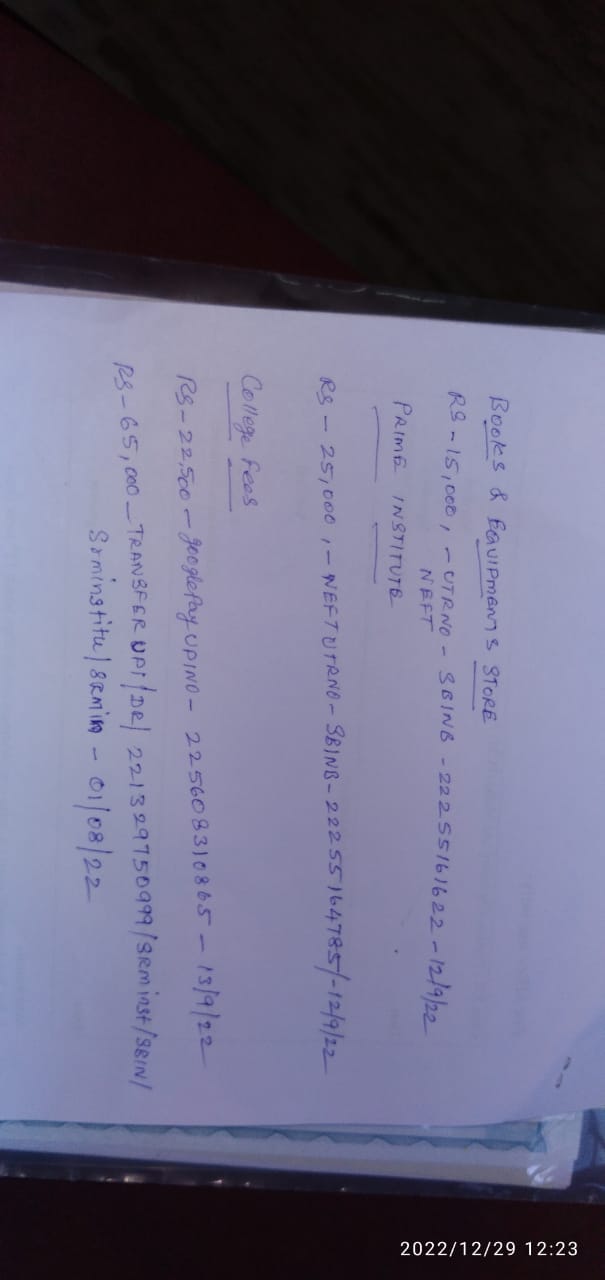 Books & EQUIPMENTS STORE
RS - 15,000, - UTRNO - SBINB - 22255161622 - 12/9/22
NEFT
PRIME INSTITUTE
RS - 25,000, - NEFT UTRNO - SBINB - 22255164785/-12/9/22
College fees
RS - 22,500 - googlePay UPINO - 225608310865 - 13/9/22
RS - 65,000 - TRANSFER UPI/DR/ 221329750999/SRMinst/SBIN/
Srminstitu/SRMin - 01/08/22
2022/12/29 12:23